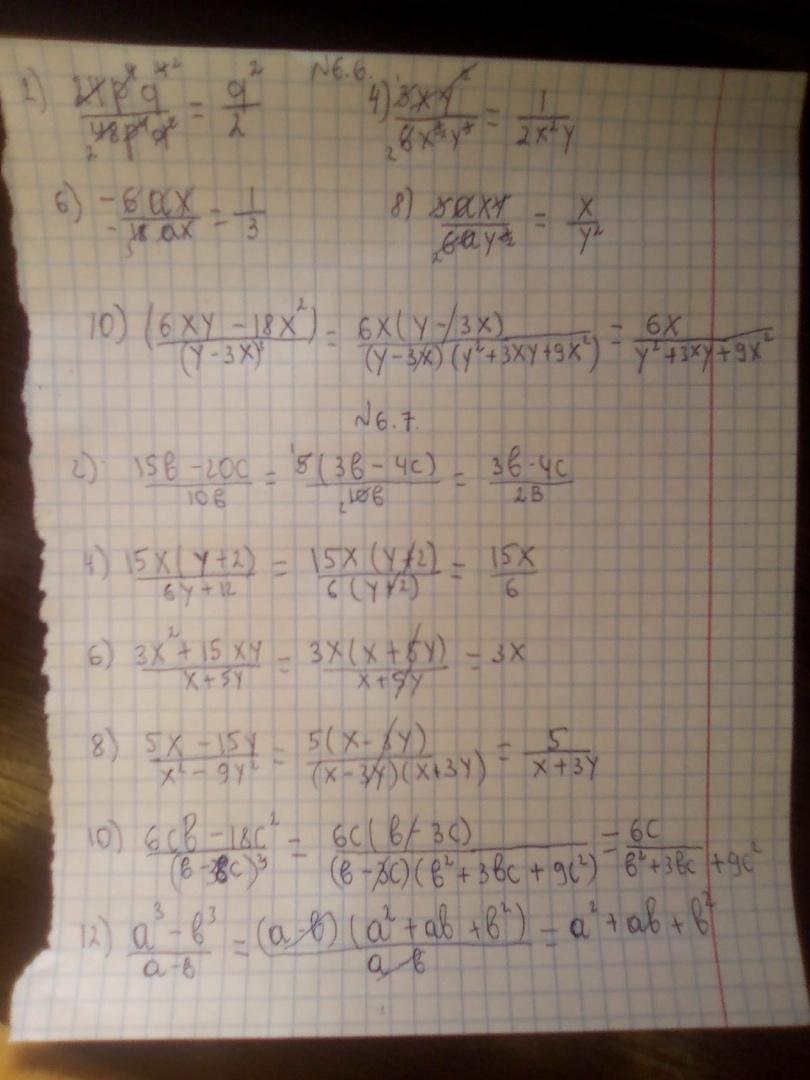 №6.6.
2) 24p⁴q⁴/48p⁴q² = q²/2 4) 3xy/6x³y² = 1/2x²y
6) -6ax/-18ax = 1/3 8) 3axy/6ay² = x/y²
10) (6xy - 18x²)/(y - 3x)³ = 6x(y - 3x)/(y - 3x)(y² + 3xy + 9x²) = 6x/y² + 3xy + 9x²
№6.7.
2) 15в - 20c/10в = 5(3в - 4c)/10в = 3в - 4c/2в
4) 15x(y + 2)/6y + 12 = 15x(y + 2)/6(y + 2) = 15x/6
6) 3x² + 15xy/x + 5y = 3x(x + 5y)/x + 5y = 3x
8) 5x - 15y/x² - 9y² = 5(x - 3y)/(x - 3y)(x + 3y) = 5/x + 3y
10) 6cв - 18c²/(в - 3c)³ = 6c(в - 3c)/(в - 3c)(в² + 3вc + 9c²) = 6c/в² + 3вc + 9c²
12) a³ - в³/a - в = (a - в)(a² + aв + в²)/a - в = a² + aв + в²